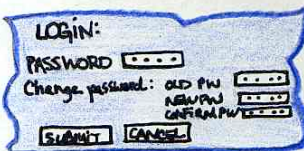 LOGIN:
PASSWORD
Change password: OLD PW
NEW PW
CONFIRM PW
SUBMIT CANCEL